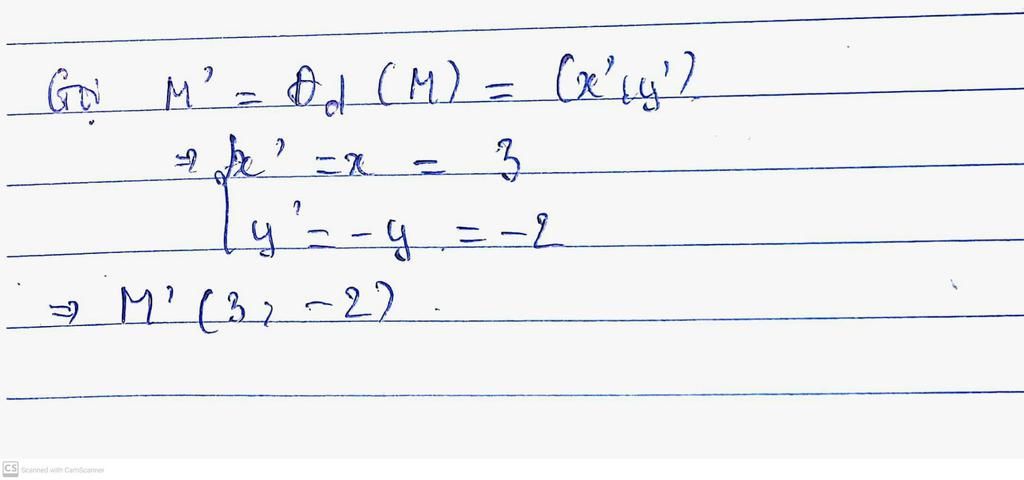 Gọi M' = Đd (M) = (x', y')
⇒ { x' = x = 3
y' = -y = -2
⇒ M' (3, -2).
CS Scanned with CamScanner